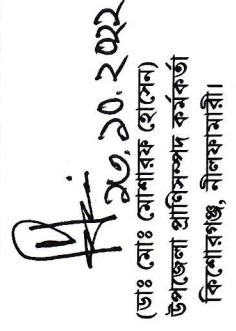 ২৩.১০.২০২২
(ডাঃ মোঃ মোশারফ হোসেন)
উপজেলা প্রাণিসম্পদ কর্মকর্তা
কিশোরগঞ্জ, নীলফামারী।